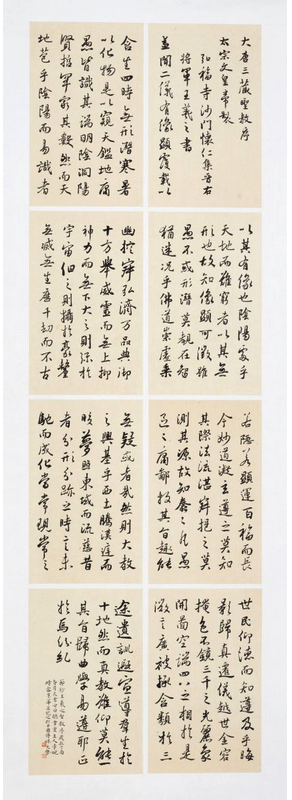 大唐三藏聖教序
太宗文皇帝製
弘福寺沙門懷仁集晉右
將軍王羲之書
蓋聞二儀有像顯覆載以
含生四時無形潛寒暑
以化物是以窺天鑑地庸
愚皆識其端明陰洞陽
賢哲罕窮其數然而天
地苞乎陰陽而易識者
以其有像也陰陽處乎
天地而難窮者以其無
形也故知像顯可徵雖
愚不惑形潛莫覩在智
猶迷況乎佛道崇虛乘
幽控寂弘濟萬品典御
十方舉威靈而無上抑
神力而無下大之則彌於
宇宙細之則攝於豪釐
無滅無生歷千劫而不古
若隱若顯運百福而長
今妙道凝玄遵之莫知
其際法流湛寂挹之莫
測其源故知蠢蠢凡愚
區區庸鄙投其旨趣能
無疑惑者哉然則大教
之興基乎西土騰漢庭而
晈夢照東域而流慈昔
者分形分跡之時言未
馳而成化當常現常之
世民仰德而知遵及乎晦
影歸真遷儀越世金容
掩色不鏡三千之光麗象
開圖空端四八之相於是
微言廣被拯含類於三
途遺訓遐宣導群生於
十地然而真教難仰莫能一
其旨歸曲學易遵邪正
於焉紛糺